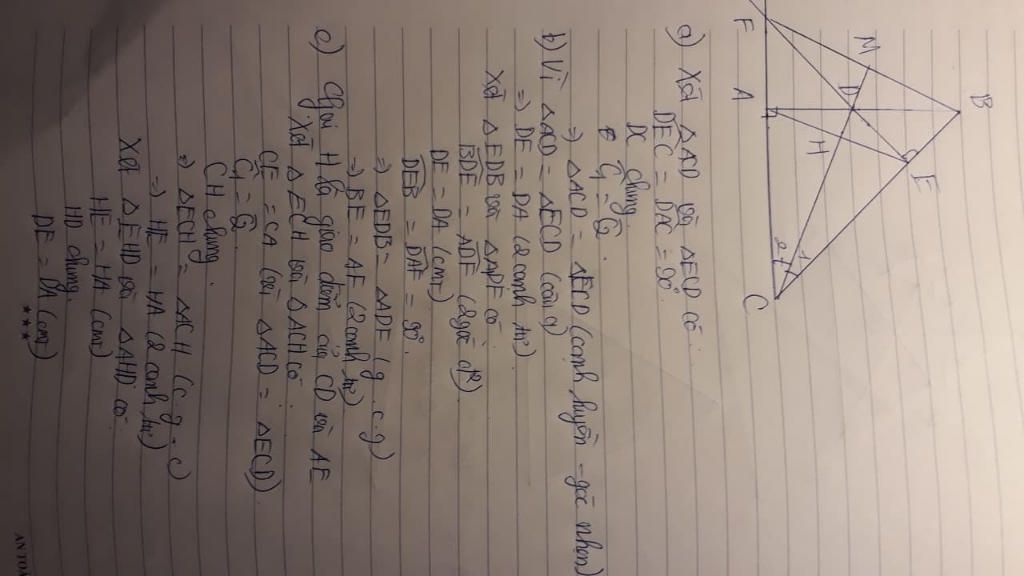 B
M
E
D
F
A
H
C
1
2
a) Xét △ACD và △ECD có:
DEC = DAC = 90°.
DC chung.
C₁ = C₂.
⇒ △ACD = △ECD (cạnh huyền - góc nhọn)
b) Vì △ACD = △ECD (câu a)
⇒ DE = DA (2 cạnh t/ư)
Xét △EDB và △ADF có
BDE = ADF (2 góc đđ)
DE = DA (cmt)
DEB = DAF = 90°.
⇒ △EDB = △ADF (g.c.g)
⇒ BE = AF (2 cạnh t/ư)
c) Gọi H là giao điểm của CD và AE
Xét △ECH và △ACH có
CE = CA (vì △ACD = △ECD)
C₁ = C₂.
CH chung.
⇒ △ECH = △ACH (c.g.c)
⇒ HE = HA (2 cạnh t/ư)
Xét △EHD và △AHD có
HE = HA (cmt)
HD chung.
DE = DA (cmt)
★★★